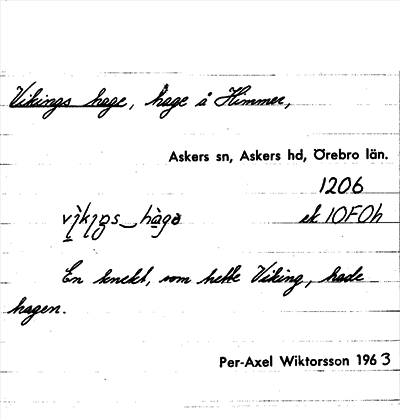 Vikings hage, hage å Himmer,
Askers sn, Askers hd, Örebro län.
1206
vì̱ki̱ŋs‿hà̱gə ek 10F0h
En knekt, som hette Viking, hade
hagen.
Per-Axel Wiktorsson 1963